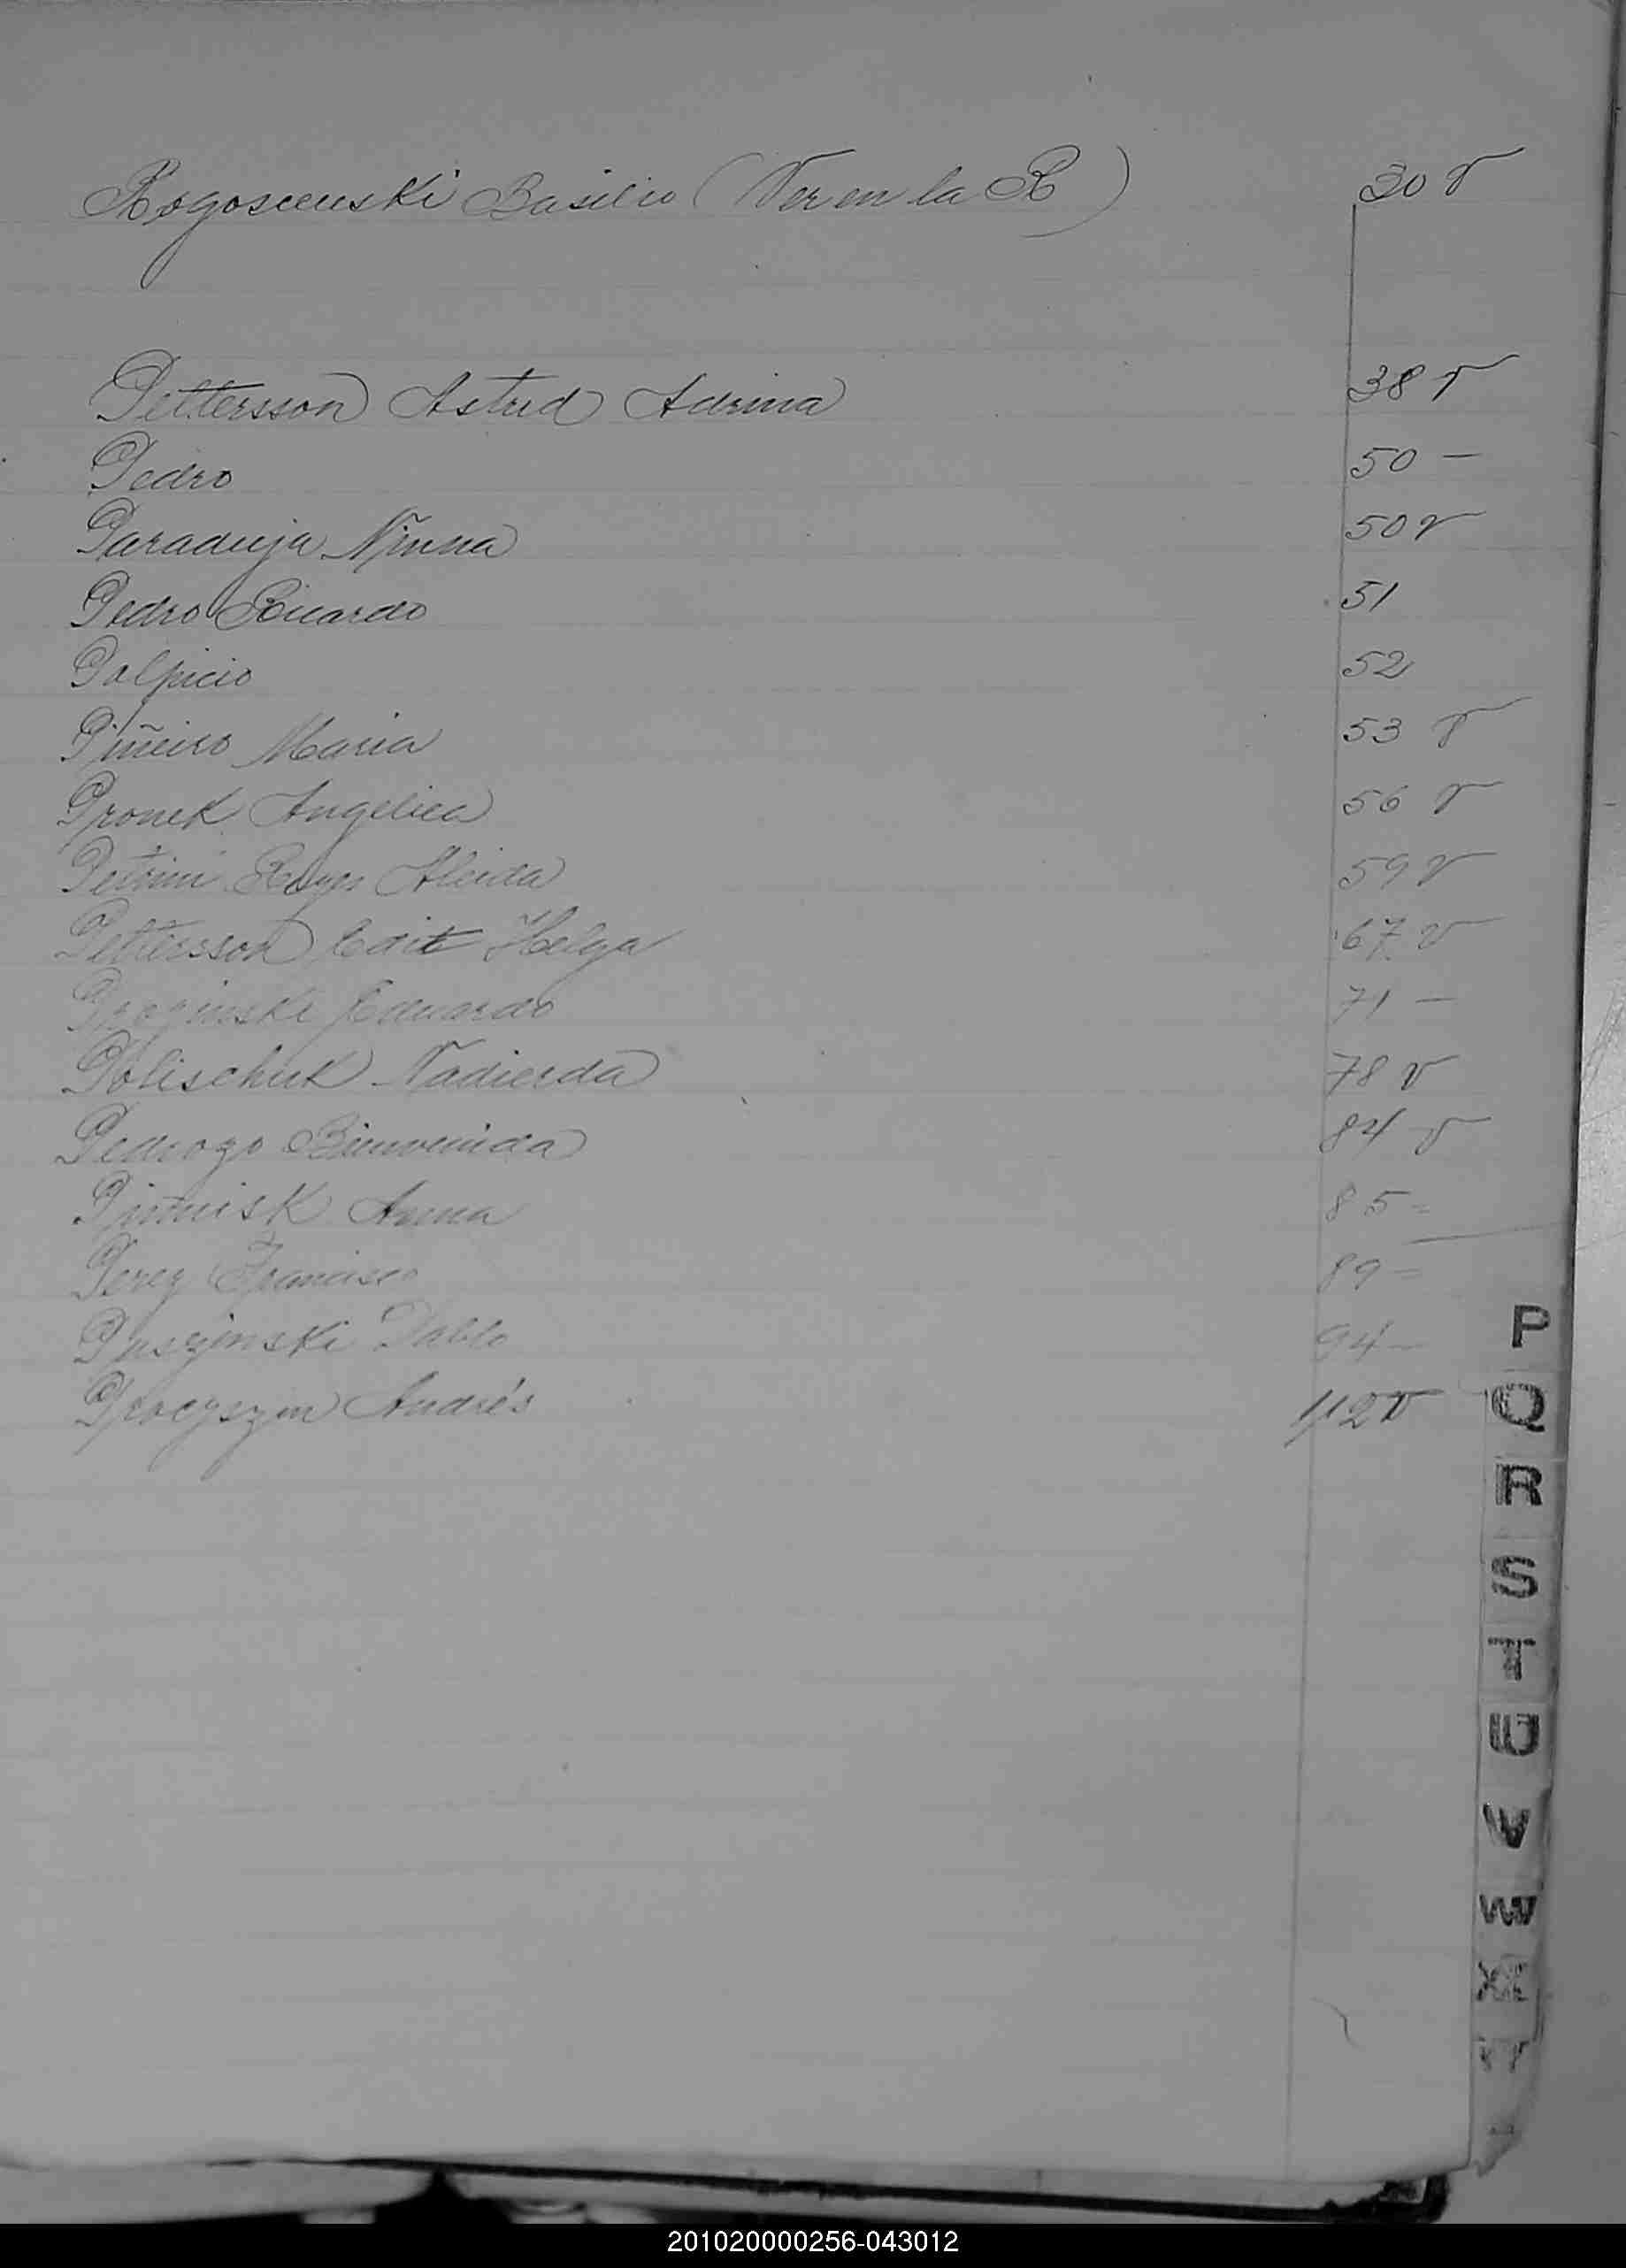 Rogoscenski Basilio (Ver en la R) 30 v
Pettersson Astrid Adrina 38 v
Pedro 50 -
Paraduja Ninna 50 v
Pedro Ricardo 51
Palpicio 52
Piñeiro Maria 53 v
Pronek Angelica 56 v
Petrini Reyes Aleida 59 v
Pettersson Edit Helga 67 v
Eduardo 71 -
Polischuk Nadieida 78 v
Pedrozo Bienvenida 84 v
Anna 85 -
Perez Francisco 89 -
Puszinski Pablo 94 -
Andrés 112 v
P
Q
R
S
T
U
V
W
X
Y
201020000256-043012